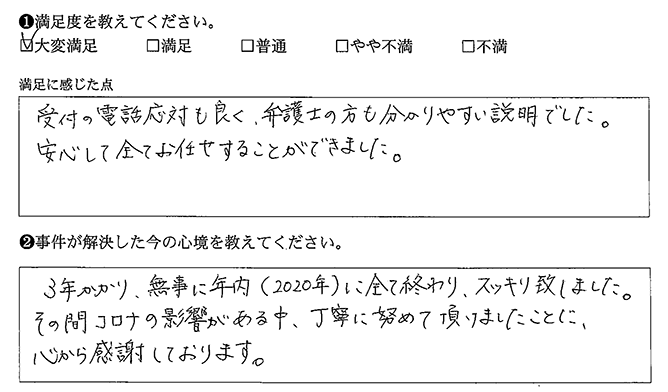 ❶満足度を教えてください。
☑大変満足 □満足 □普通 □やや不満 □不満
満足に感じた点
受付の電話応対も良く、弁護士の方も分かりやすい説明でした。
安心して全てお任せすることができました。
❷事件が解決した今の心境を教えてください。
3年かかり、無事に年内(2020年)に全て終わり、スッキリ致しました。
その間コロナの影響がある中、丁寧に努めて頂けましたことに、
心から感謝しております。